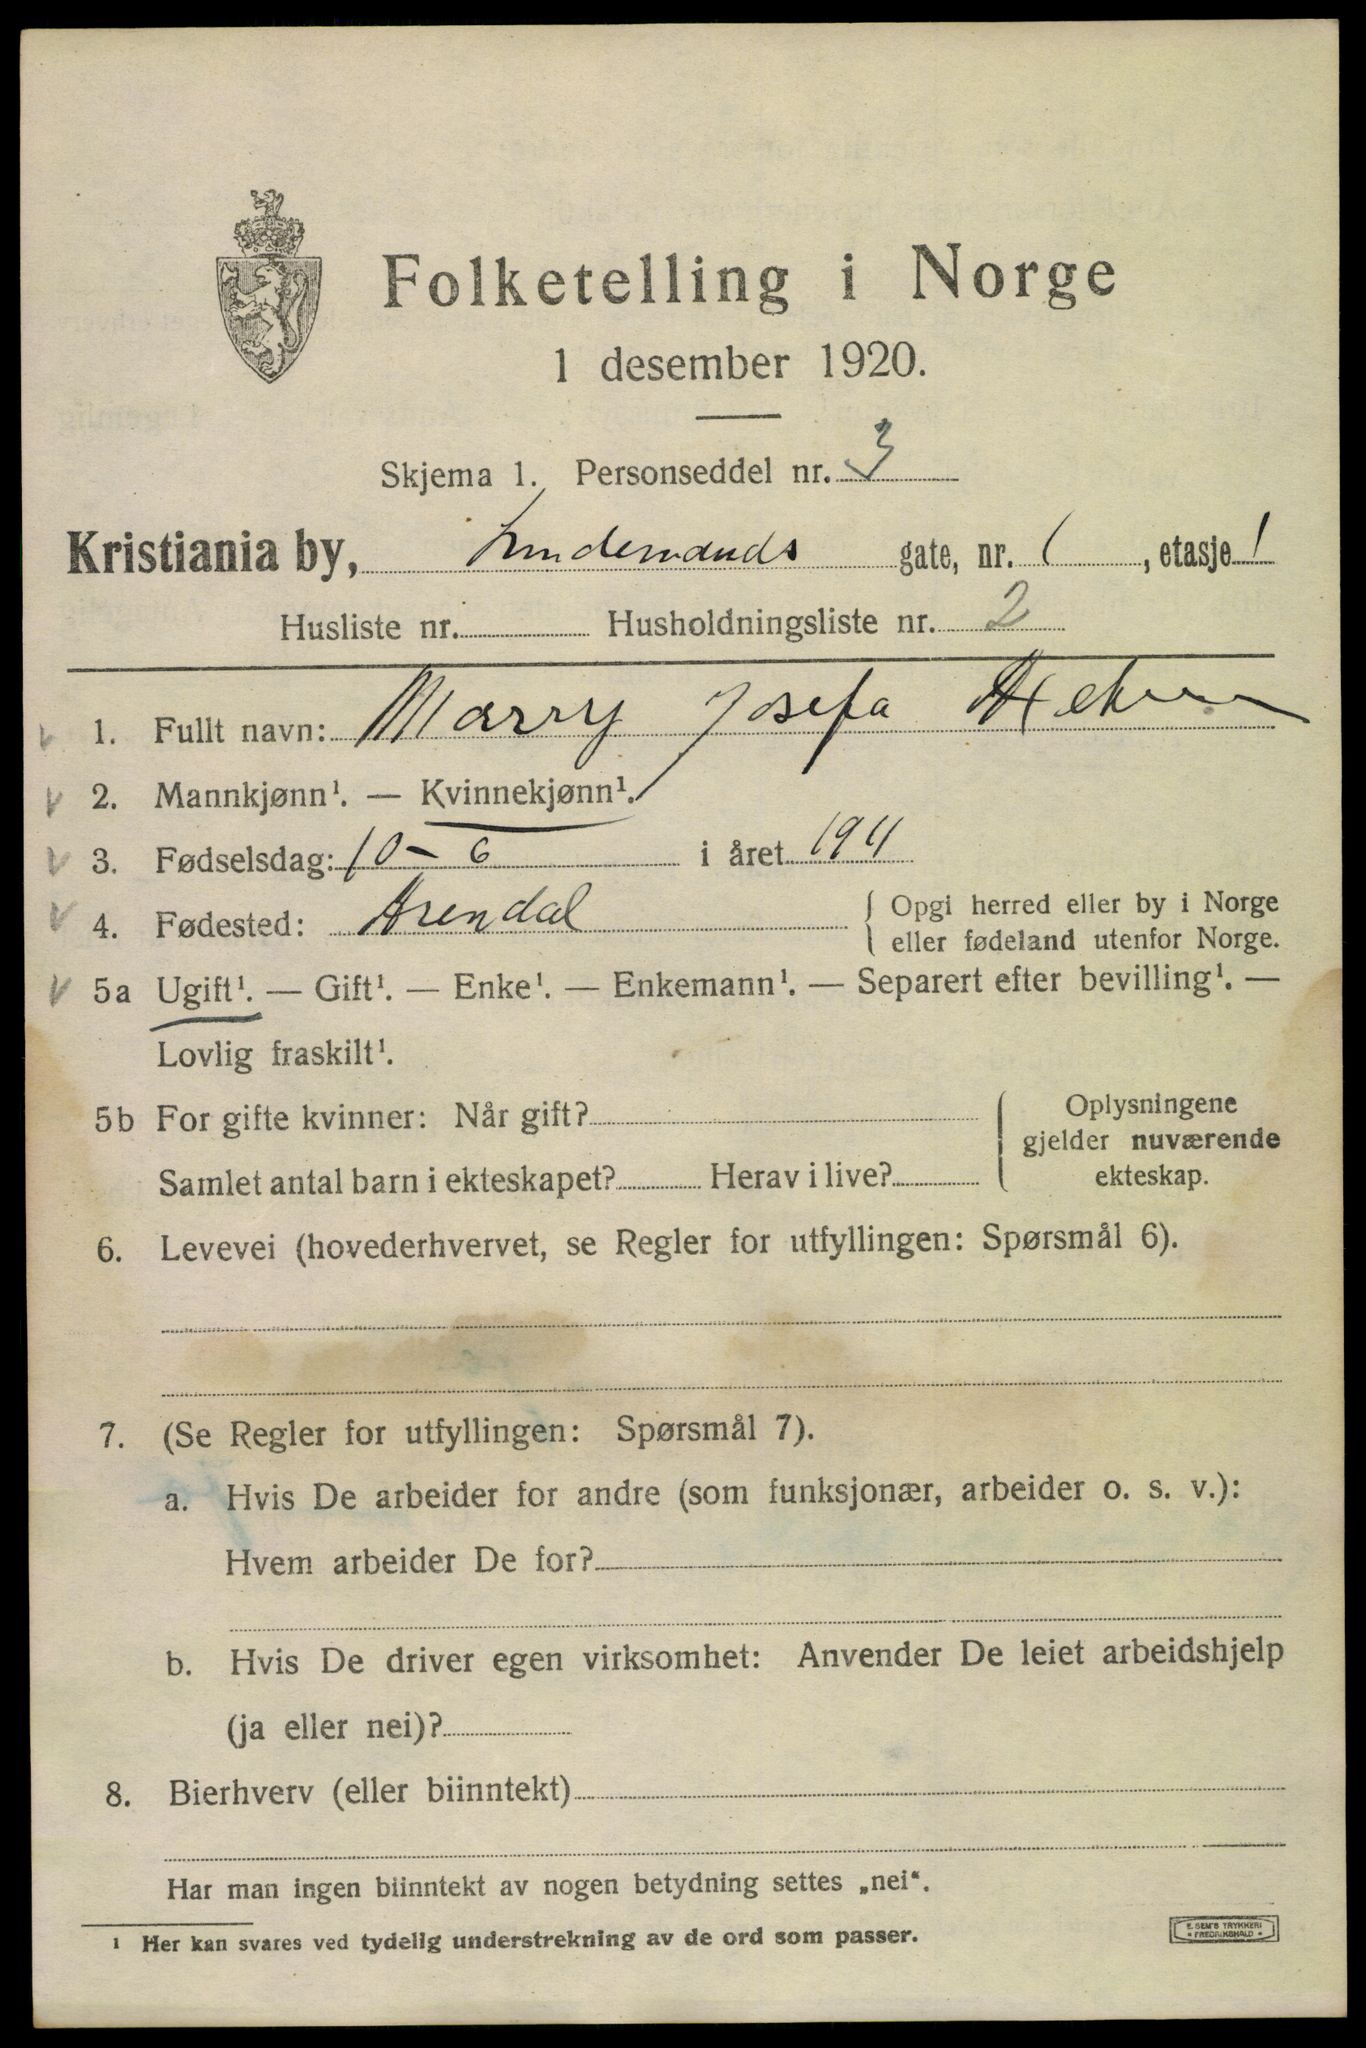 Folketelling i Norge
1 desember 1920.
Skjema 1. Personseddel nr. 3
Kristiania by, gate, nr. 1, etasje 1
Husliste nr. Husholdningsliste nr. 2
1. Fullt navn: Marry Josefa
2. Mannkjønn¹. — Kvinnekjønn¹.
3. Fødselsdag: 10 – 6 i året 1911
4. Fødested: Arendal { Opgi herred eller by i Norge
eller fødeland utenfor Norge.
5a Ugift¹. — Gift¹. — Enke¹. — Enkemann¹. — Separert efter bevilling¹. —
Lovlig fraskilt¹.
5b For gifte kvinner: Når gift? { Oplysningene
gjelder nuværende
Samlet antal barn i ekteskapet? Herav i live? ekteskap.
6. Levevei (hovederhvervet, se Regler for utfyllingen: Spørsmål 6).
7. (Se Regler for utfyllingen: Spørsmål 7).
a. Hvis De arbeider for andre (som funksjonær, arbeider o. s. v.):
Hvem arbeider De for?
b. Hvis De driver egen virksomhet: Anvender De leiet arbeidshjelp
(ja eller nei)?
8. Bierhverv (eller biinntekt)
Har man ingen biinntekt av nogen betydning settes „nei“.
¹ Her kan svares ved tydelig understrekning av de ord som passer.
E. SEM'S TRYKKERI
* FREDRIKSHALD *